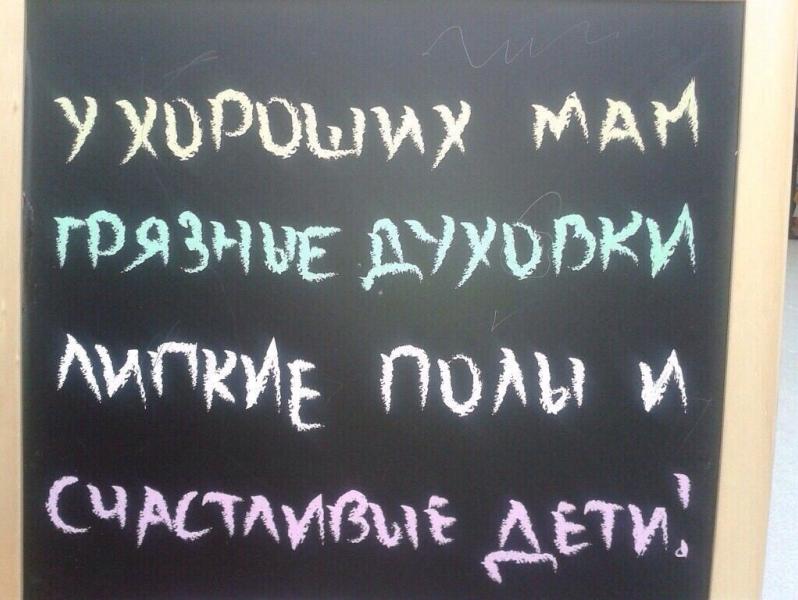 У ХОРОШИХ МАМ
ГРЯЗНЫЕ ДУХОВКИ
ЛИПКИЕ ПОЛЫ И
СЧАСТЛИВЫЕ ДЕТИ!